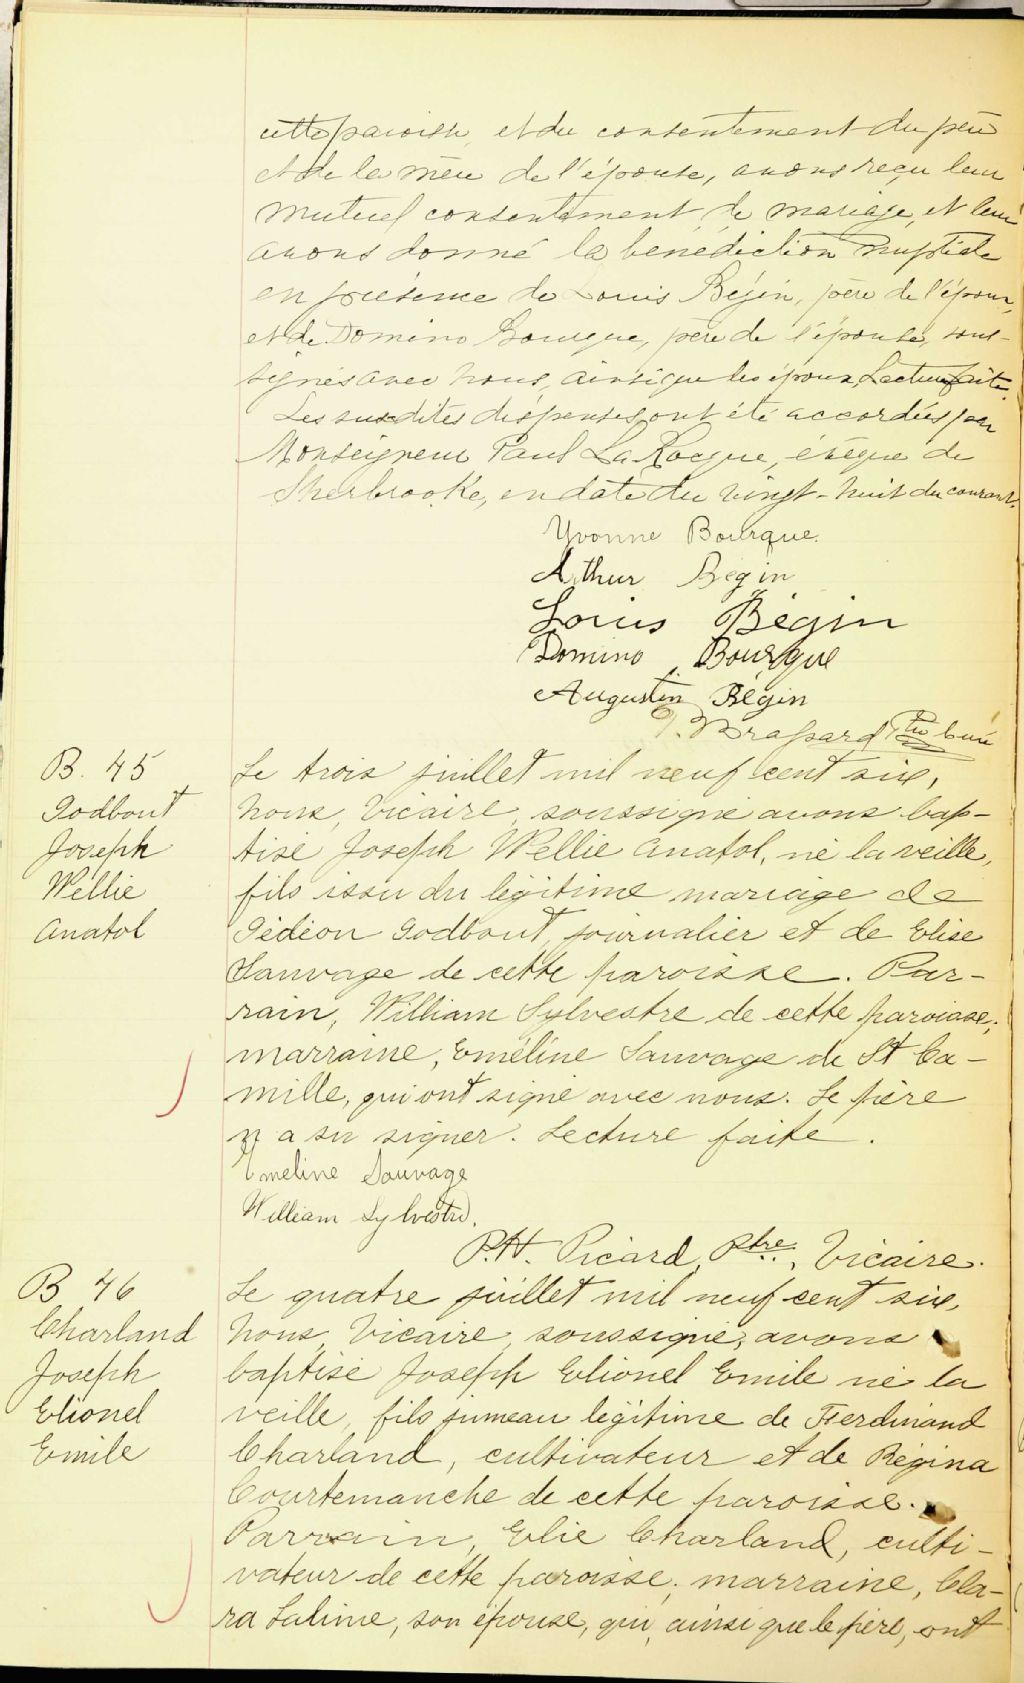 cette paroisse, et du consentement du père
et de la mère de l'épouse, avons reçu leur
mutuel consentement de mariage, et leur
avons donné la bénédiction nuptiale
en présence de Louis Bégin, père de l'époux,
et de Domino Bourque, père de l'épouse, sous-
signés avec nous, ainsi que les époux, Lecture faite.
Les susdites dispenses ont été accordées par
Monseigneur Paul LaRocque, évêque de
Sherbrooke, en date du vingt-huit du courant.
Yvonne Bourque.
Arthur Bégin
Louis Bégin
Domino Bourque
Augustin Bégin
Ptre Curé
B. 45
Godbout
Joseph
Wellie
Anatol
Le trois juillet mil neuf cent six,
nous, Vicaire, soussigné avons bap-
tisé Joseph Wellie Anatol, né la veille,
fils issu du légitime mariage de
Gédéon Godbout, journalier et de Elise
Sauvage de cette paroisse. Par-
rain, William Sylvestre de cette paroisse;
marraine, Eméline Sauvage de St Ca-
mille, qui ont signé avec nous. Le père
n'a su signer. Lecture faite.
Emeline Sauvage
William Sylvestre.
P.H. Picard, Ptre., Vicaire.
B 46
Charland
Joseph
Elionel
Emile
Le quatre juillet mil neuf cent six,
nous, Vicaire, soussigné, avons
baptisé Joseph Elionel Emile né la
veille, fils jumeau légitime de Ferdinand
Charland, cultivateur et de Régina
Courtemanche de cette paroisse.
Parrain, Elie Charland, culti-
vateur de cette paroisse; marraine, Cla-
ra Salime, son épouse, qui, ainsi que le père, ont